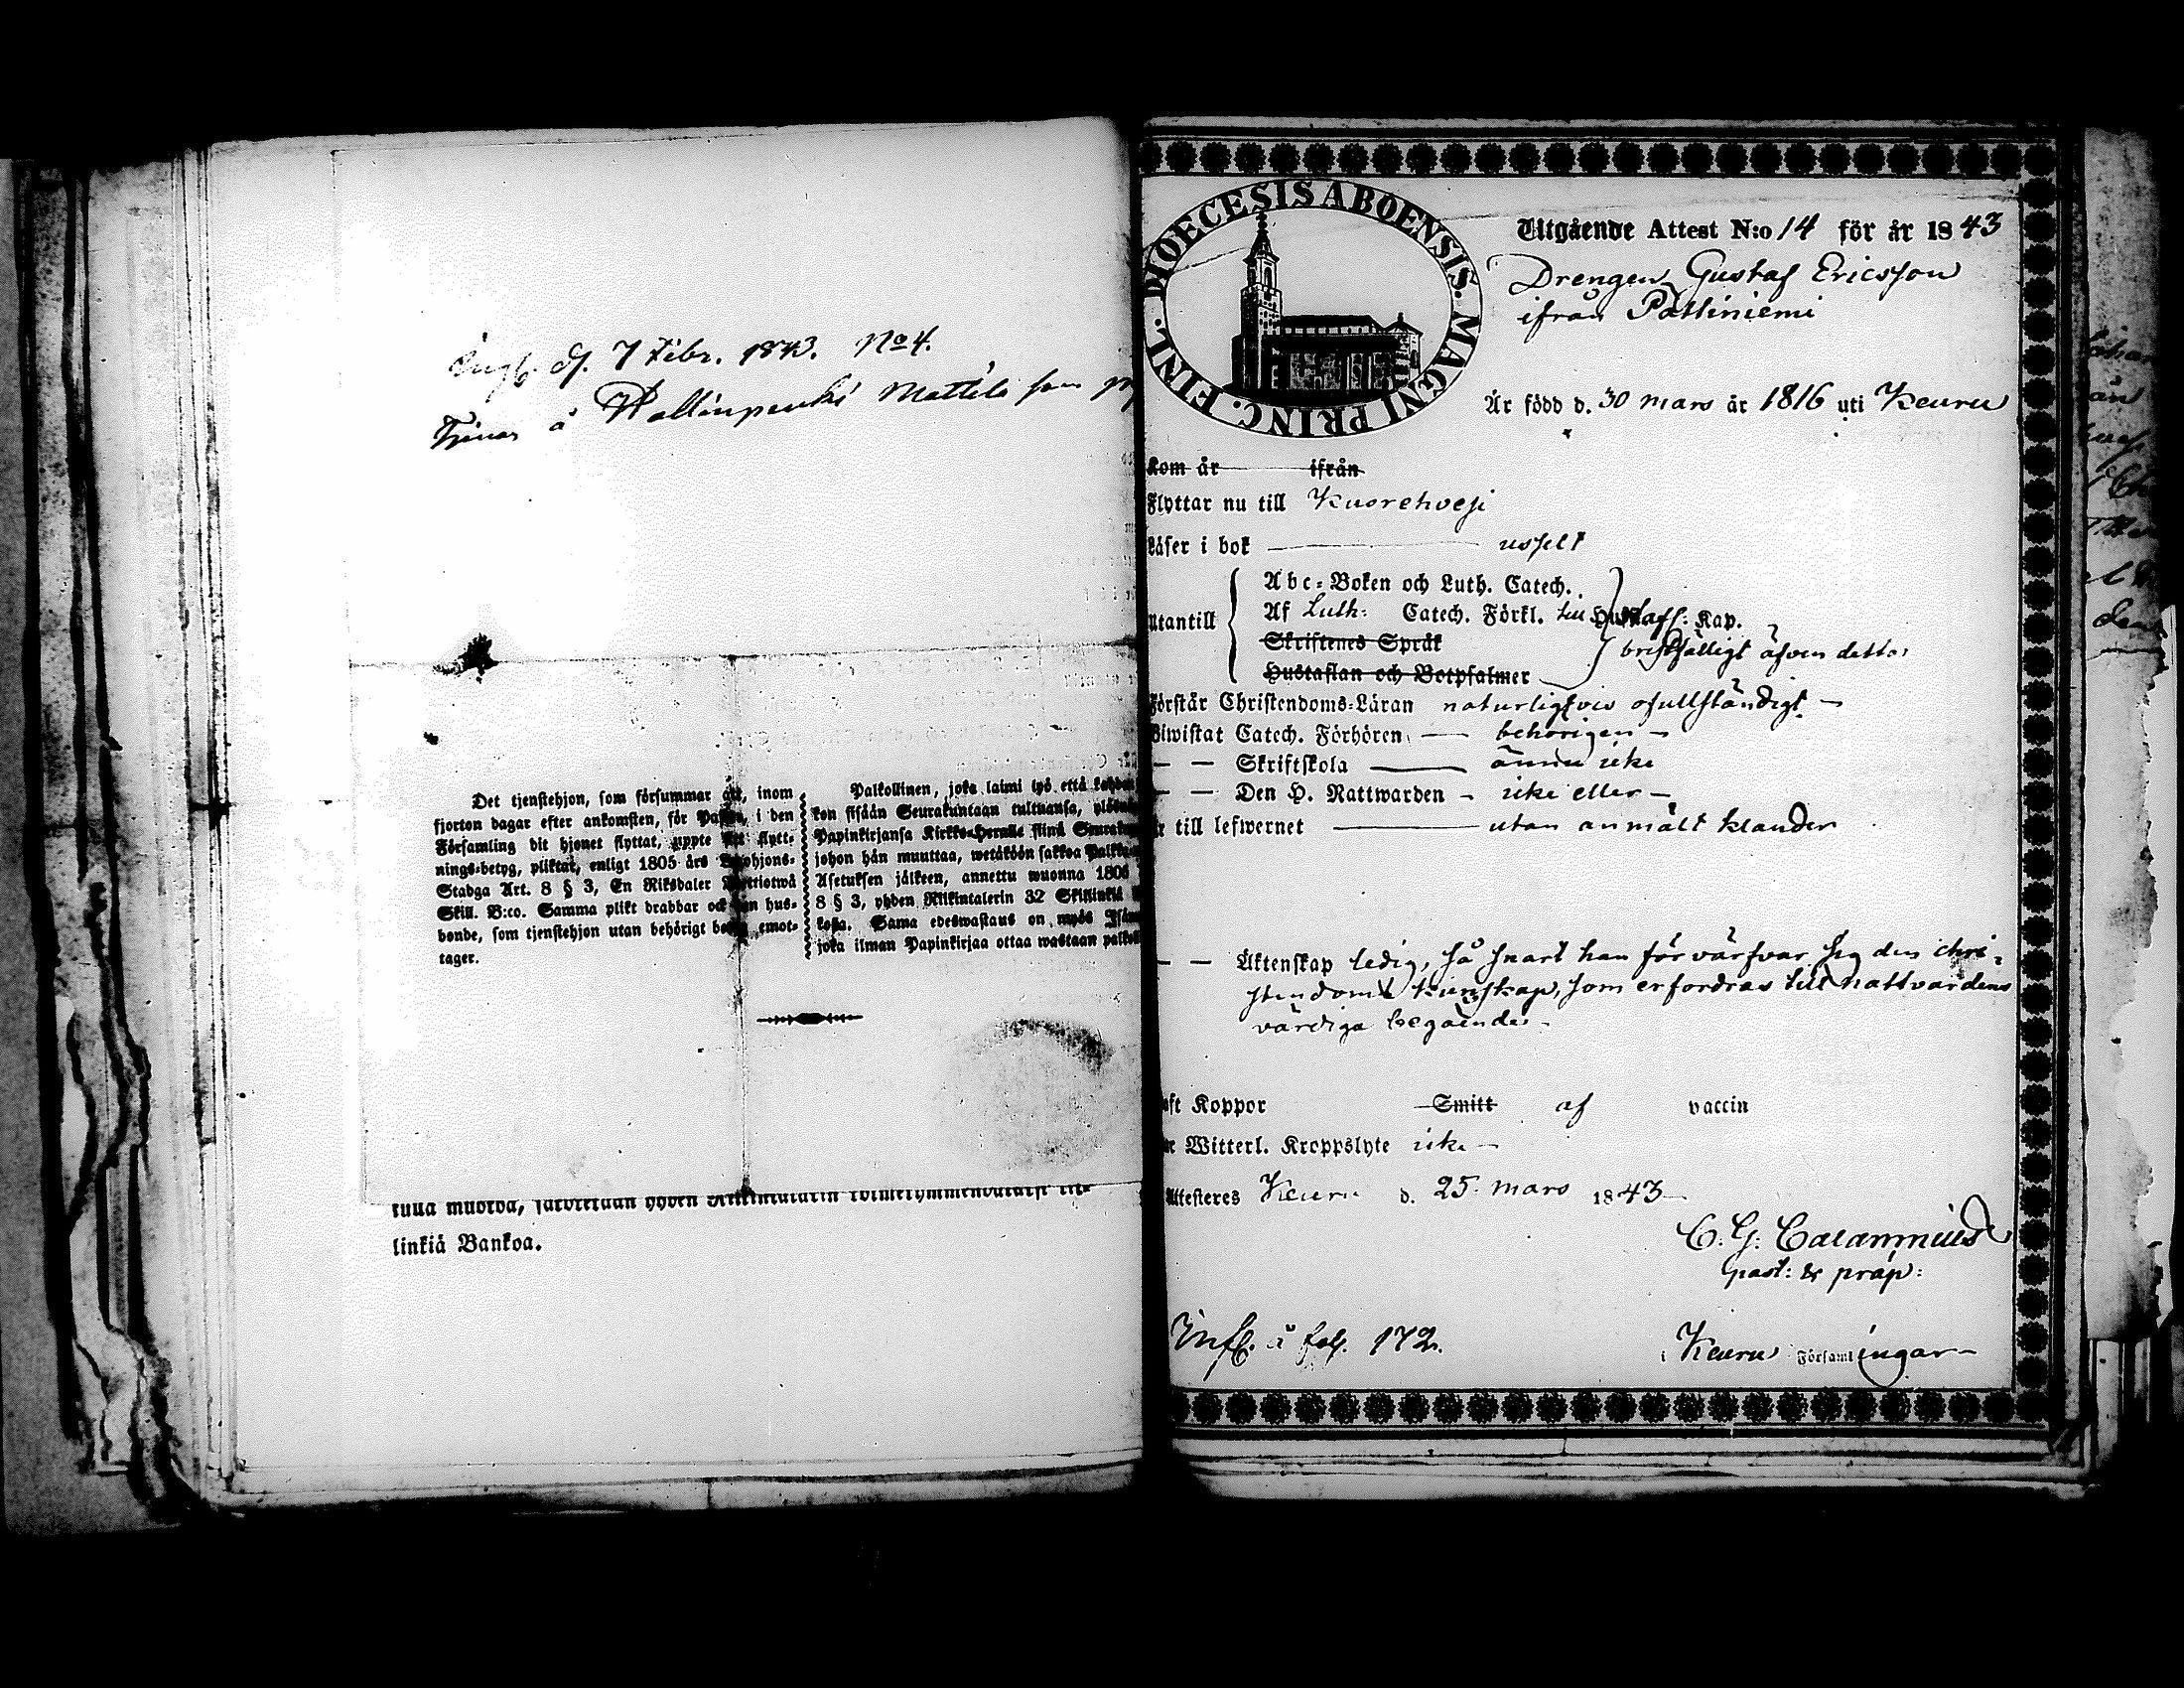 d. 7 Febr. 1843. No 4.
Tjenar å Mattila som
Det tjenstehjon, som försummar att, inom
fjorton dagar efter ankomsten, för i den
Församling dit hjonet flyttat, uppte sitt flytt-
nings-betyg, pliktar, enligt 1805 års
Stadga Art. 8 § 3, En Riksdaler
Skill. B:co. Samma plikt drabbar och den hus-
bonde, som tjenstehjon utan behörigt emot-
tager.
Palkollinen, joka laimi lyö että
kon sisään Seurakuntaan tultuansa,
Papinkirjansa Kirkko-Herralle siinä
johon hän muuttaa, wetäköön sakkoa
Asetuksen jälkeen, annettu wuonna 1805
8 § 3, yhden Riikintalerin 32 Skillinkiä
Sama edeswastaus on myös
joka ilman Papinkirjaa ottaa wastaan
linkiä Bankoa.
DIOECESIS ABOENSIS. MAGNI PRINC. FINL.
Utgående Attest N:o 14 för år 1843
Drengen Gustaf Ericsson
ifrån
Är född d. 30 mars år 1816 uti Keuru
Kom år ifrån
Flyttar nu till Kuorehvesi
Läser i bok usselt
Utantill
Abc-Boken och Luth. Catech.
Af Luth: Catech. Förkl. till Kap.
Skriftenes Språk
bristfälligt äfven detta
Hustaflan och Botpsalmer
Förstår Christendoms-Läran naturligtvis ofullständigt —
Biwistat Catech. Förhören — behörigen —
— — Skriftskola — ännu icke
— — Den H. Nattwarden — icke eller —
till lefwernet — utan anmält klander
— — Äktenskap ledig, så snart han förvärfvar sig den chri-
stendoms kunskap, som erfordras till nattvardens
värdiga begående. —
Koppor Smitt af vaccin
Witterl. Kroppslyte icke —
Attesteres Keuru d. 25 mars 1843 —
C. G. Calamnius
past: & præp:
Inf. å fol. 172.
i Keuru Församlingar —